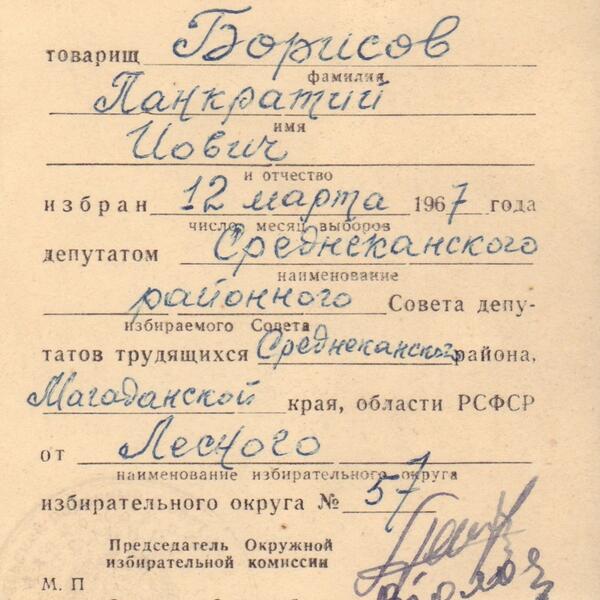 товарищ Борисов
фамилия
Панкратий
имя
Иович
и отчество
избран 12 марта 1967 года
число, месяц выборов
депутатом Среднеканского
наименование
районного Совета депу-
избираемого Совета
татов трудящихся Среднеканского района,
Магаданской края, области РСФСР
от Лесного
наименование избирательного округа
избирательного округа № 57
Председатель Окружной
избирательной комиссии
М. П